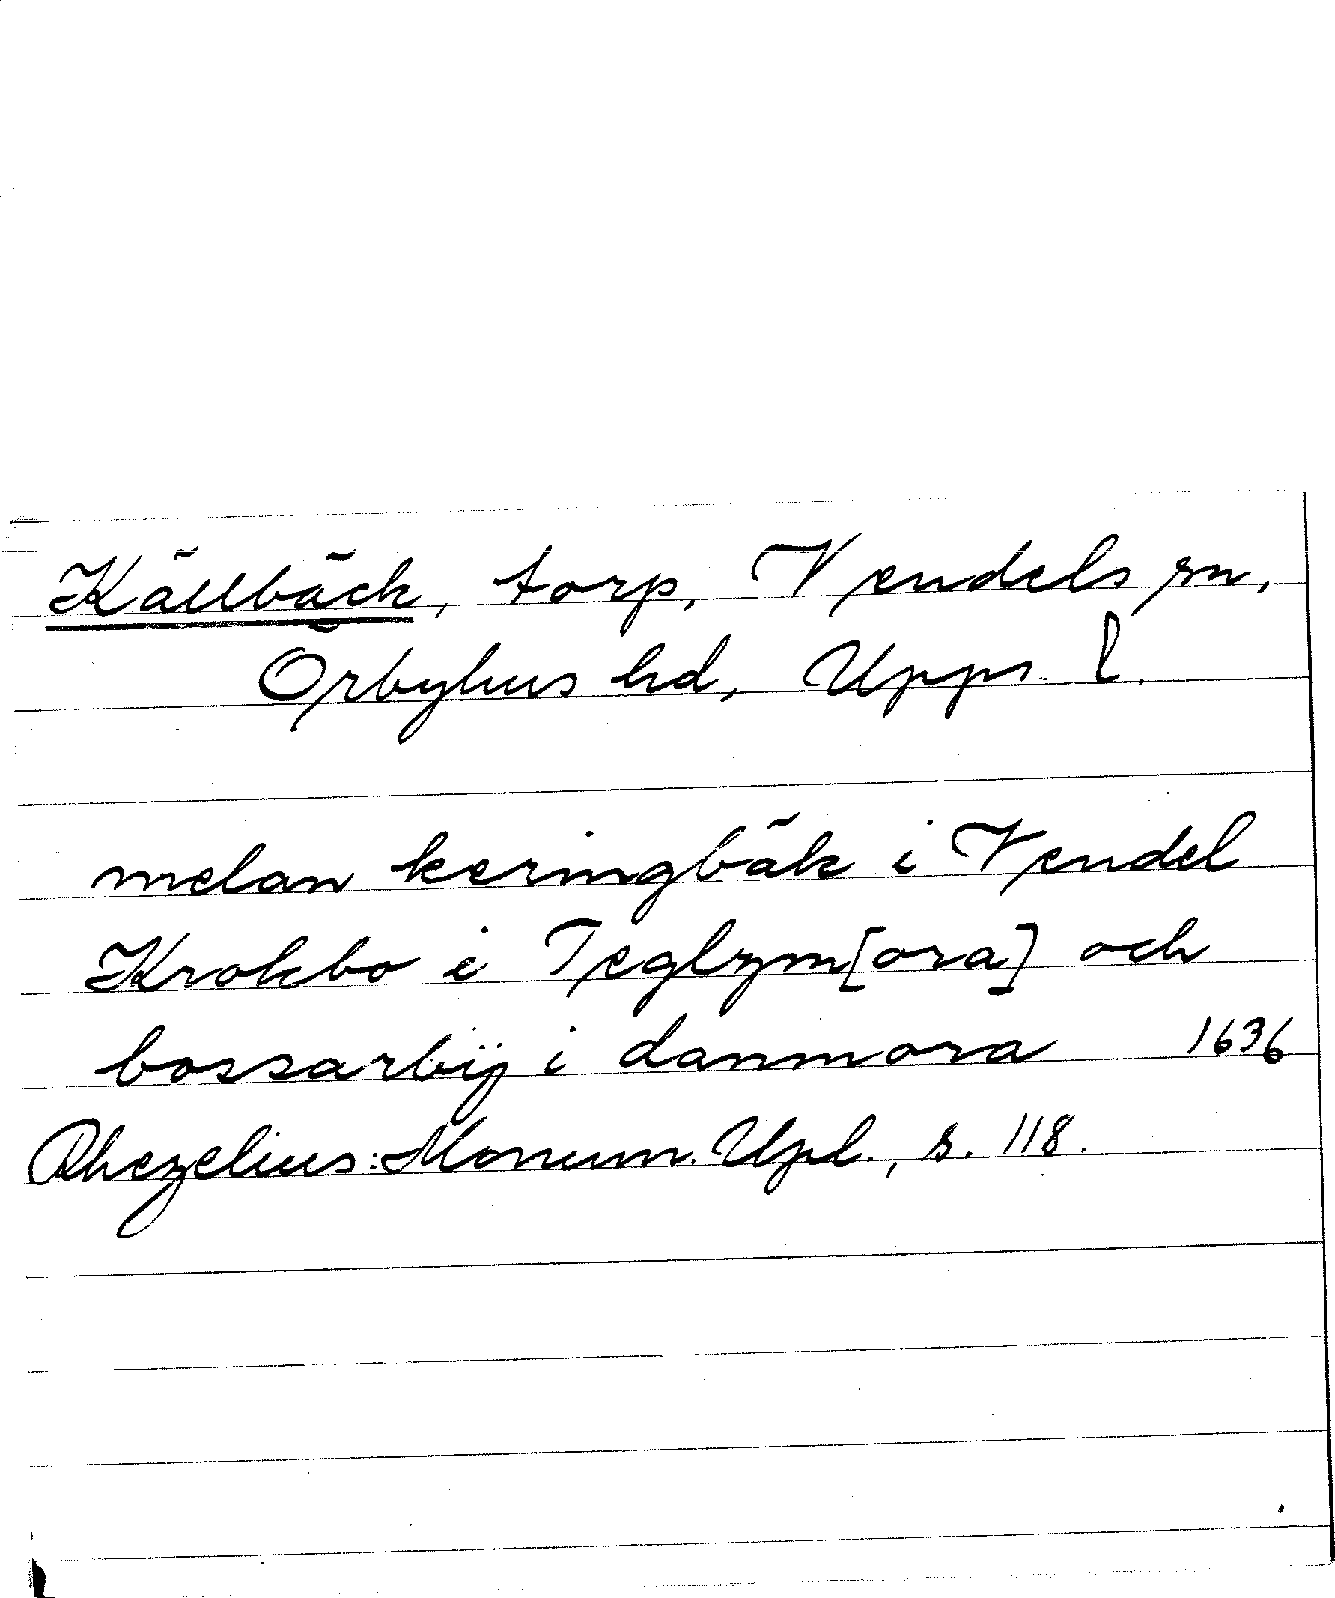 Källbäck, torp, Vendels sn,
Örbyhus hd, Upps. l.
melan keringbäk i Vendel
Krokbo i Teglzm[ora] och
bossarbÿ i danmora 1636
Rhezelius: Monum. Upl., s. 118.